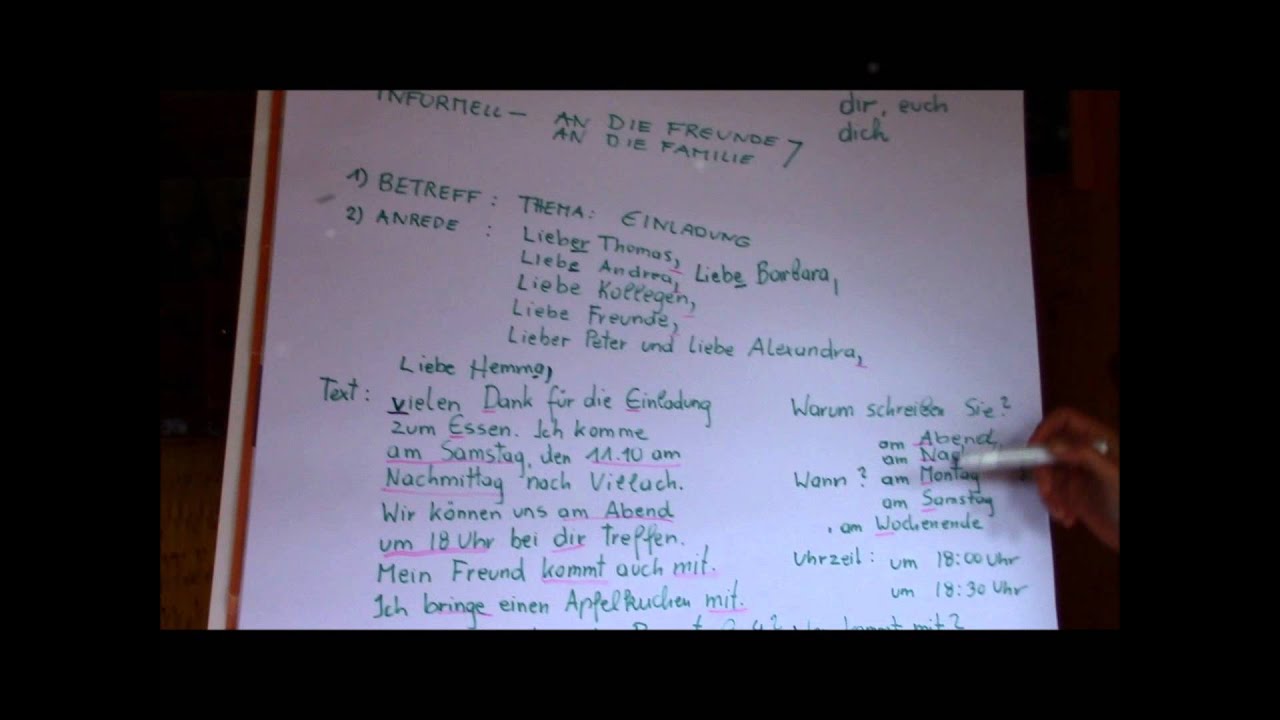 INFORMELL – AN DIE FREUNDE 7
AN DIE FAMILIE
dir, euch
dich
1) BETREFF : THEMA: EINLADUNG
2) ANREDE : Lieber Thomas,
Liebe Andrea, Liebe Barbara,
Liebe Kollegen,
Liebe Freunde,
Lieber Peter und Liebe Alexandra,
Liebe Hemma,
Text: vielen Dank für die Einladung
zum Essen. Ich komme
am Samstag, den 11.10 am
Nachmittag nach Villach.
Wir können uns am Abend
um 18 Uhr bei dir treffen.
Mein Freund kommt auch mit.
Ich bringe einen Apfelkuchen mit.
Warum schreiben Sie?
am Abend,
am
Wann? am Montag
am Samstag
am Wochenende
Uhrzeit: um 18:00 Uhr
um 18:30 Uhr
kommt mit?